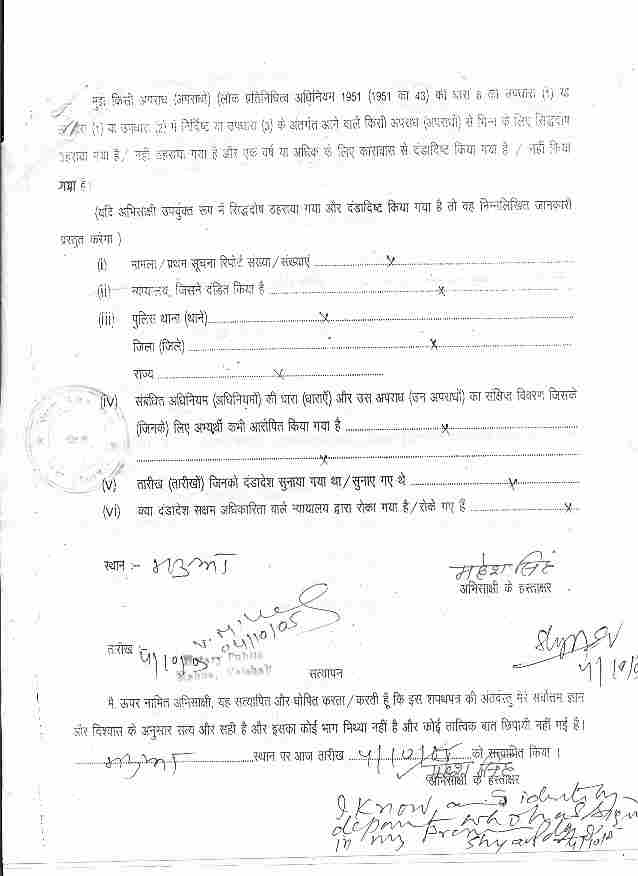 मुझे किसी अपराध (अपराधों) (लोक प्रतिनिधित्व अधिनियम 1951 (1951 का 43) की धारा 8 की उपधारा (1) या
(1) या उपधारा (2) में निर्दिष्ट या उपधारा (3) के अंतर्गत आने वाले किसी अपराध (अपराधों) से भिन्न के लिए सिद्धदोष
ठहराया गया है / नहीं ठहराया गया है और एक वर्ष या अधिक के लिए कारावास से दंडादिष्ट किया गया है / नहीं किया
गया है।
(यदि अभिसाक्षी उपर्युक्त रूप में सिद्धदोष ठहराया गया और दंडादिष्ट किया गया है तो वह निम्नलिखित जानकारी
प्रस्तुत करेगा )
(i) मामला / प्रथम सूचना रिपोर्ट संख्या / संख्याएं ........ x ........
(ii) न्यायालय, जिसने दंडित किया है ........ x ........
(iii) पुलिस थाना (थाने) ........ x ........
जिला (जिले) ........ x ........
राज्य ........ x ........
(iv) संबंधित अधिनियम (अधिनियमों) की धारा (धाराएँ) और उस अपराध (उन अपराधों) का संक्षिप्त विवरण जिसके
(जिनके) लिए अभ्यर्थी कभी आरोपित किया गया है ........ x ........
........ x ........
(v) तारीख (तारीखों) जिनको दंडादेश सुनाया गया था / सुनाए गए थे ........ x ........
(vi) क्या दंडादेश सक्षम अधिकारिता वाले न्यायालय द्वारा रोका गया है / रोके गए हैं ........ x
स्थान :- महुआ
महेश सिंह
अभिसाक्षी के हस्ताक्षर
04/10/05
तारीख : 4/10/05
Notary Public
Mahua, Vaishali
4/10/05
सत्यापन
मैं ऊपर नामित अभिसाक्षी, यह सत्यापित और घोषित करता / करती हूँ कि इस शपथपत्र की अंतर्वस्तु मेरे सर्वोत्तम ज्ञान
और विश्वास के अनुसार सत्य और सही है और इसका कोई भाग मिथ्या नहीं है और कोई तात्विक बात छिपायी नहीं गई है।
महुआ स्थान पर आज तारीख 4/10/05 को सत्यापित किया ।
महेश सिंह
अभिसाक्षी के हस्ताक्षर
I know identify
deponent who has sign
in my presence